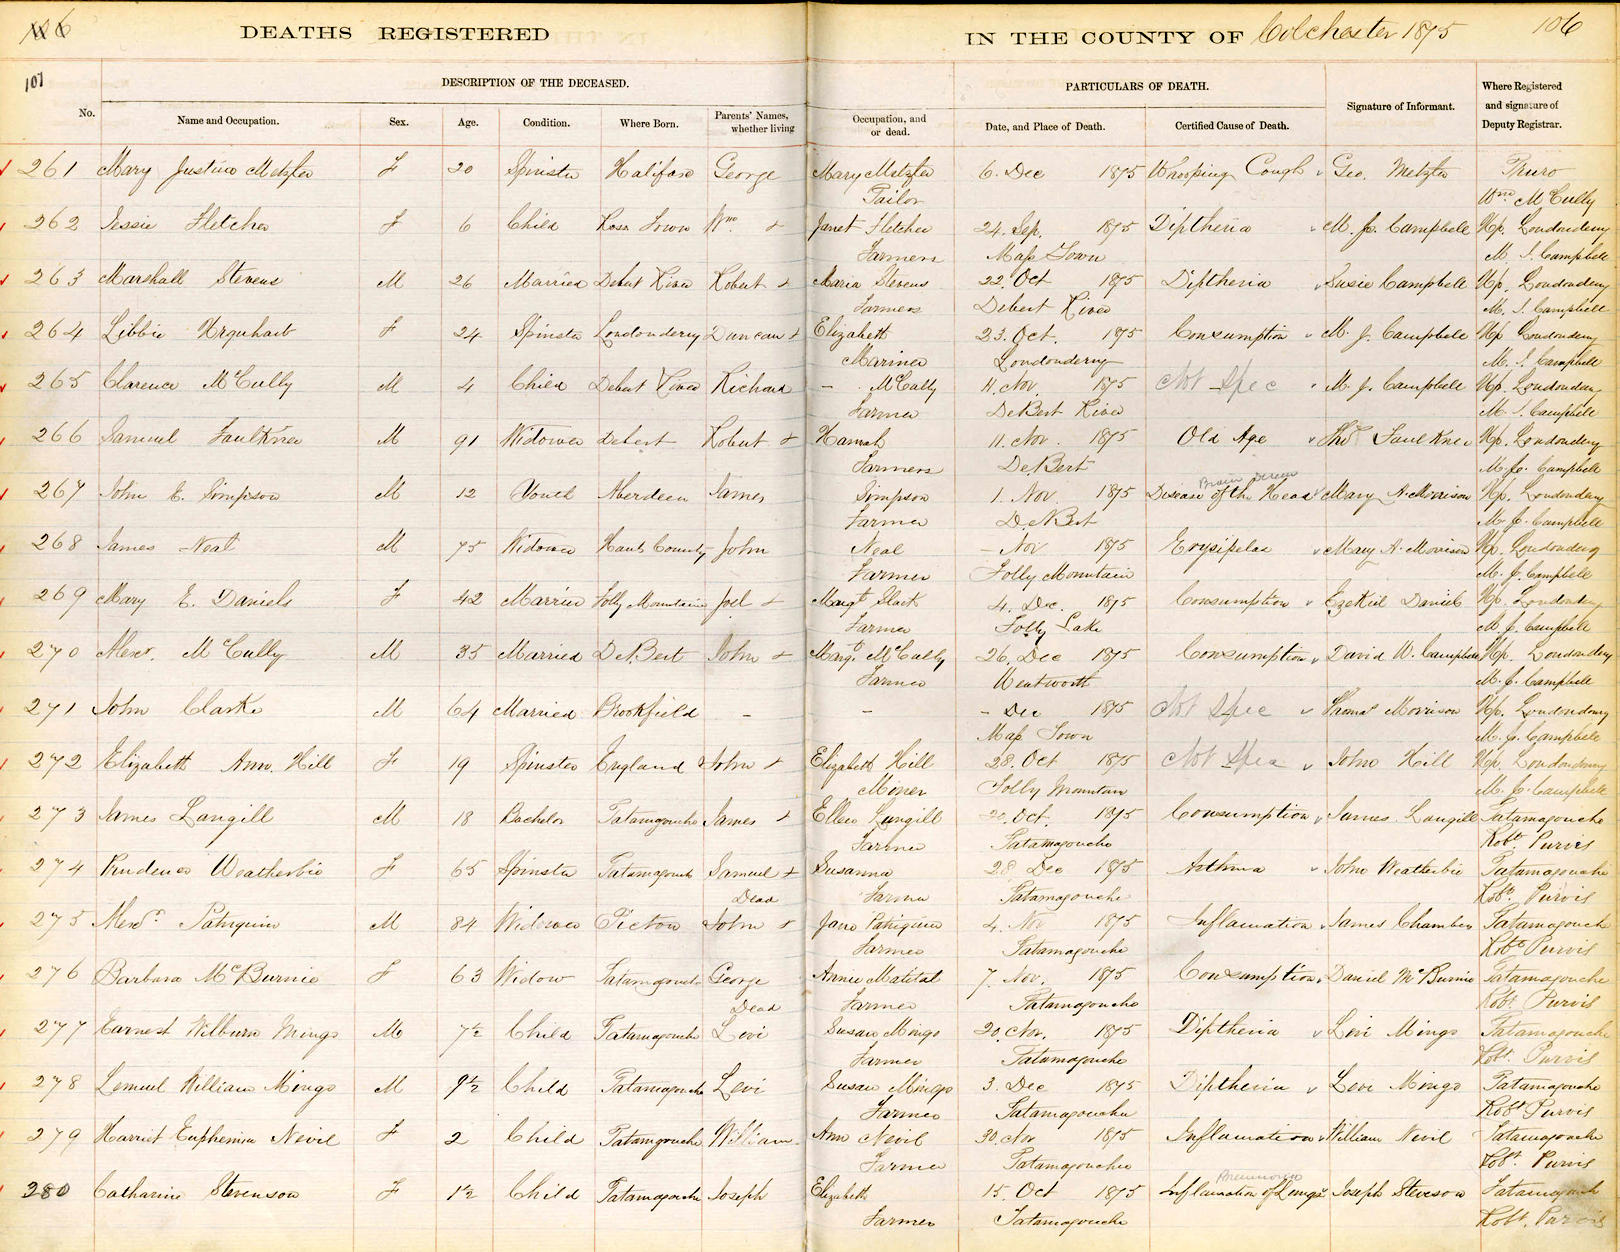 106 DEATHS REGISTERED IN THE COUNTY OF Colchester 1875 106
107
DESCRIPTION OF THE DECEASED. PARTICULARS OF DEATH.
No. Name and Occupation. Sex. Age. Condition. Where Born. Parents' Names, whether living Occupation, and or dead. Date, and Place of Death. Certified Cause of Death. Signature of Informant. Where Registered and signature of Deputy Registrar.
261 Mary Justino Metzler F 20 Spinster Halifax George Mary Metzler 6. Dec 1875 Whooping Cough Geo. Metzler Truro
Tailor Wm McCully
262 Jessie Fletcher F 6 Child Ross Town Wm + Janet Fletcher 24. Sep. 1875 Diptheria M. J. Campbell Up. Londonderry
Farmers Map Town M. J. Campbell
263 Marshall Stevens M 26 Married Debert River Robert + Maria Stevens 22. Oct 1875 Diptheria Susie Campbell Up. Londonderry
Farmers Debert River M. J. Campbell
264 Libbie Urquhart F 24 Spinster Londonderry Duncan + Elizabeth 23. Oct. 1875 Consumption M. J. Campbell Up Londonderry
Mariner Londonderry M. J. Campbell
265 Clarence McCully M 4 Child Debert River Richard – McCully 11. Nov. 1875 Not Spec M. J. Campbell Up. Londonderry
Farmer DeBert River M. J. Campbell
266 Samuel Faulkner M 91 Widower Debert Robert + Hannah 11. Nov. 1875 Old Age Thos Faulkner Up. Londonderry
Farmers DeBert M. J. Campbell
267 John E. Simpson M 12 Youth Aberdeen James Simpson 1. Nov 1875 Disease of the Head Mary A. Morrison Up. Londonderry
Farmer DeBert M. J. Campbell
268 James Neal M 75 Widower Hants County John Neal – Nov 1875 Erysipelas Mary A. Morrison Up. Londonderry
Farmer Folly Mountain M. J. Campbell
269 Mary E. Daniels F 42 Married Folly Mountain Joel + Margt Slack 4. Dec. 1875 Consumption Ezekiel Daniels Up. Londonderry
Farmer Folly Lake M. J. Campbell
270 Alexr. McCully M 35 Married DeBert John + Margt. McCully 26. Dec 1875 Consumption David W. Campbell Up. Londonderry
Farmer Wentworth M. J. Campbell
271 John Clarke M 64 Married Brookfield – – – Dec 1875 Not Spec Thomas Morrison Up. Londonderry
Map Town M. J. Campbell
272 Elizabeth Ann. Hill F 19 Spinster England John + Elizabeth Hill 28. Oct 1875 Not Spec John Hill Up. Londonderry
Miner Folly Mountain M. J. Campbell
273 James Langill M 18 Bachelor Tatamagouche James + Ellen Langill 20. Oct. 1875 Consumption James Langill Tatamagouche
Farmer Tatamagouche Robt. Purvis
274 Prudence Weatherbie F 65 Spinster Tatamagouche Samuel + Susanna 28 Dec 1875 Asthma John Weatherbie Tatamagouche
Dead Farmer Tatamagouche Robt. Purvis
275 Alexr. Patriquin M 84 Widower Pictou John + Jane Patriquin 4. Nov 1875 Inflamation James Chambers Tatamagouche
Farmer Tatamagouche Robt Purvis
276 Barbara McBurnie F 63 Widow Tatamagouche George Annie Matatal 7. Nov. 1875 Consumption Daniel McBurnie Tatamagouche
Dead Farmer Tatamagouche Robt Purvis
277 Earnest Wilburn Mingo M 7½ Child Tatamagouche Levi Susan Mingo 20. Nov. 1875 Diptheria Levi Mingo Tatamagouche
Farmer Tatamagouche Robt. Purvis
278 Lemuel William Mingo M 9½ Child Tatamagouche Levi Susan Mingo 3. Dec 1875 Diptheria Levi Mingo Tatamagouche
Farmer Tatamagouche Robt Purvis
279 Harriet Euphemia Nevil F 2 Child Tatamagouche William Ann Nevil 30. Nov 1875 Inflamation William Nevil Tatamagouche
Farmer Tatamagouche Robt. Purvis
280 Catharine Stevenson F 1½ Child Tatamagouche Joseph Elizabeth 15. Oct 1875 Inflamation of Lungs Joseph Stevenson Tatamagouche
Farmer Tatamagouche Robt. Purvis